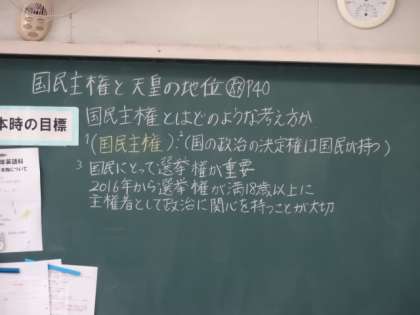 国民主権と天皇の地位 P40
本時の目標
国民主権とはどのような考え方か
1(国民主権):2(国の政治の決定権は国民が持つ)
3 国民にとって選挙権が重要
2016年から選挙権が満18歳以上に
主権者として政治に関心を持つことが大切